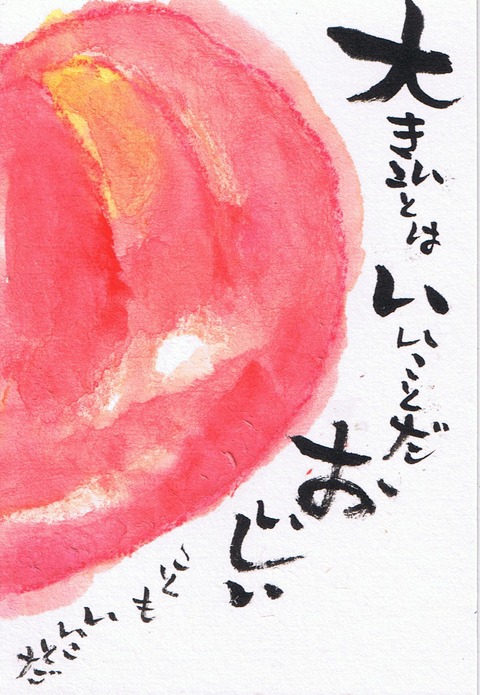 大きいことは
いいことだ
おいしい
ことも
いいことだ